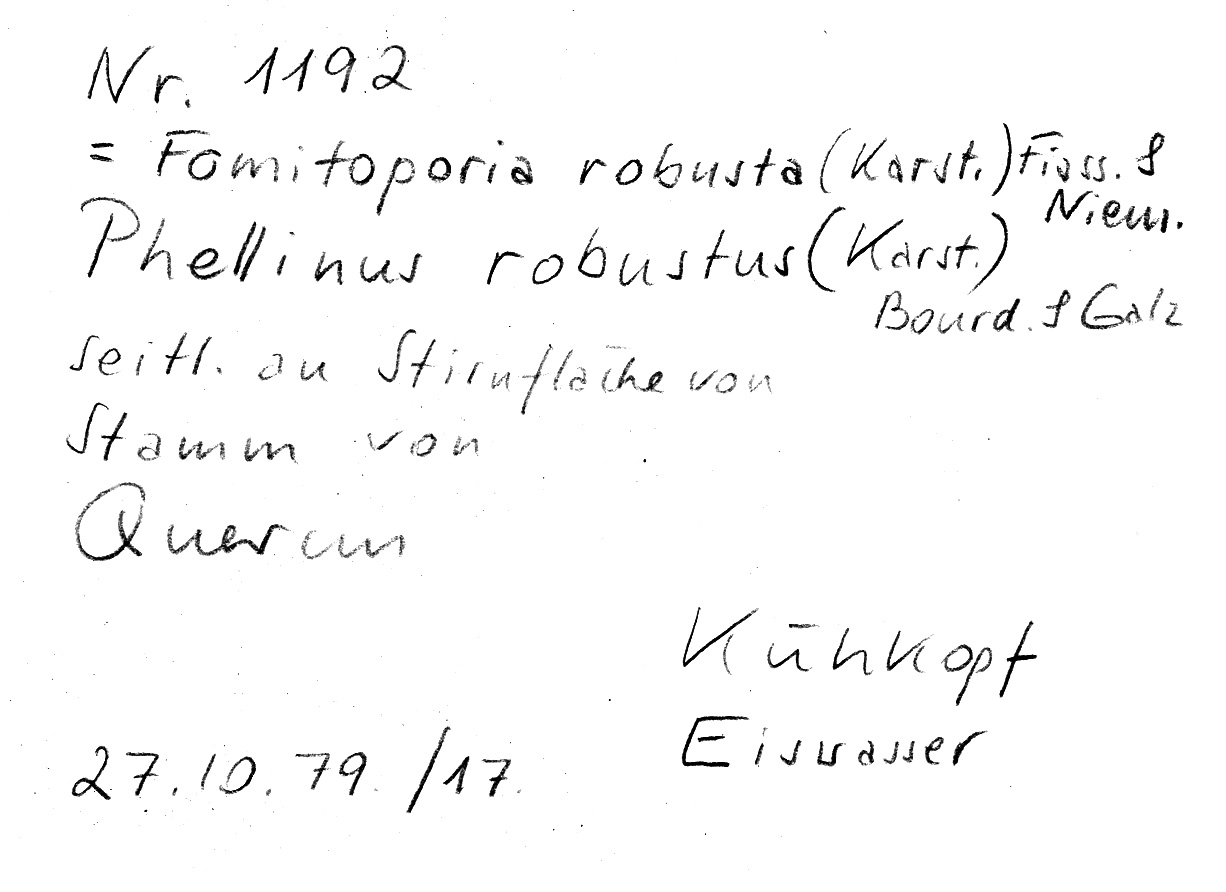 Nr. 1192
= Fomitoporia robusta (Karst.) Fiass. & Niem.
Phellinus robustus (Karst.) Bourd. & Galz
seitl. an Stirnfläche von
Stamm von
Quercus
Kühkopf
Eiswasser
27.10.79 /17